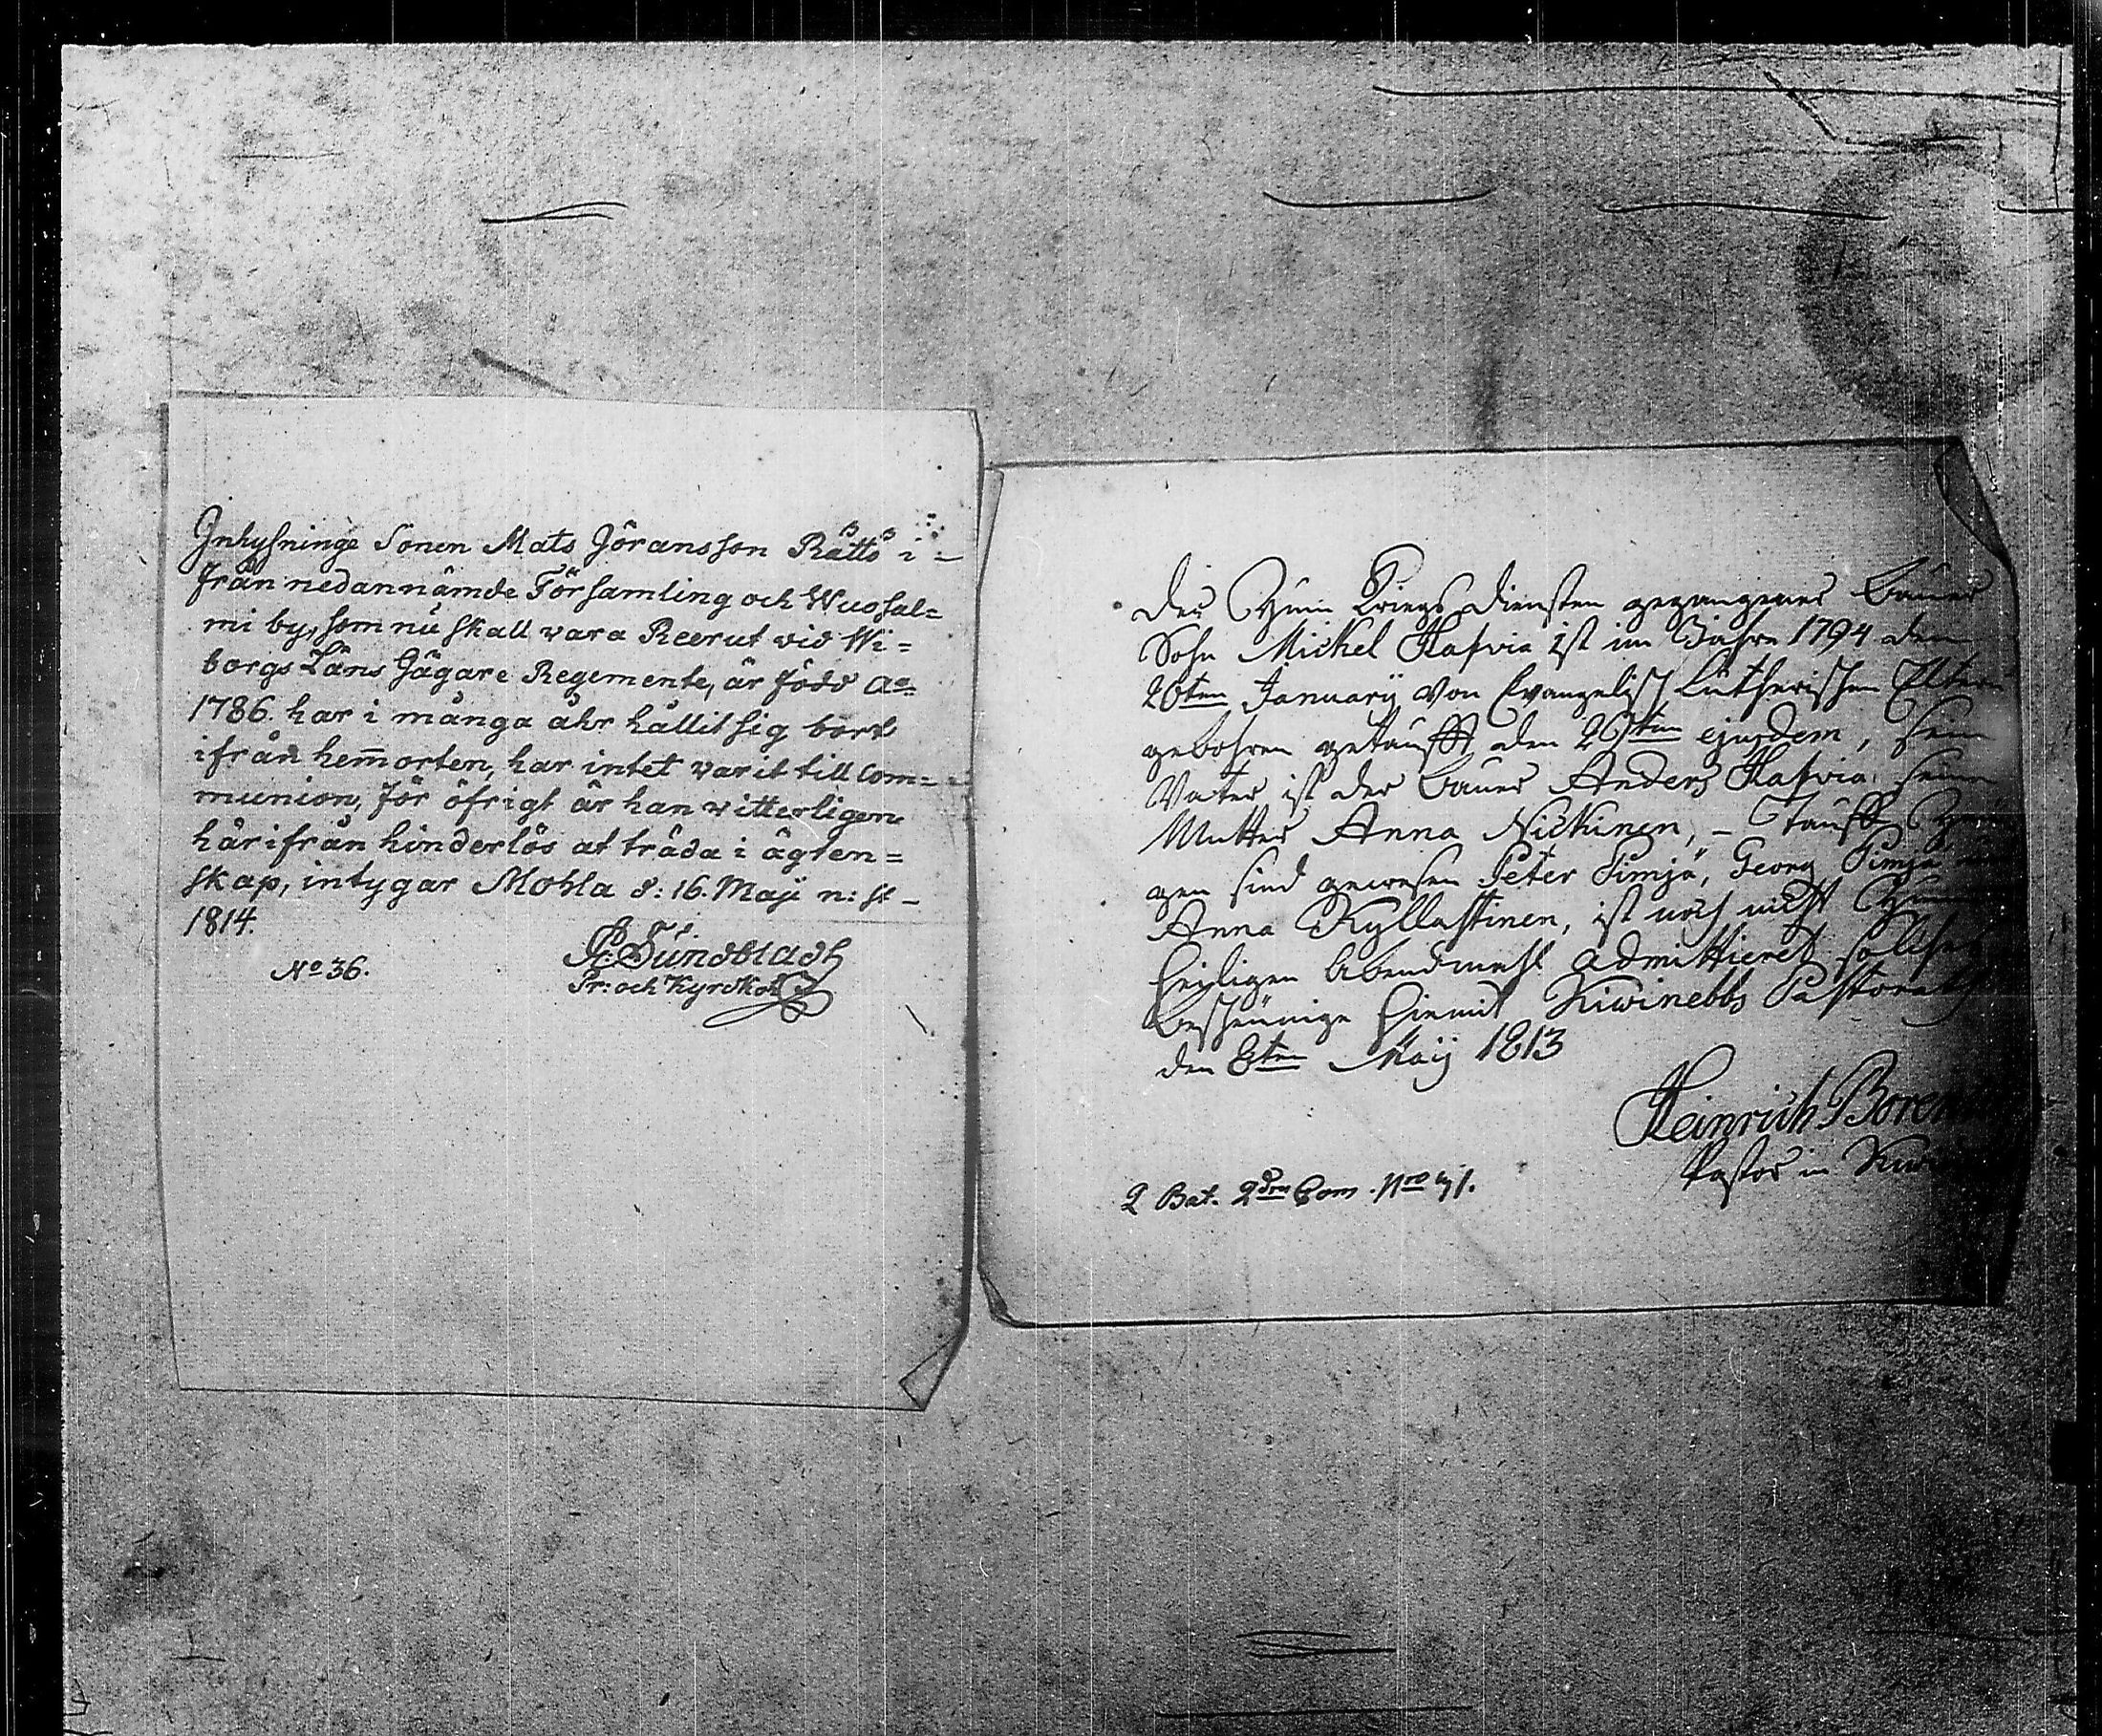 Inhysninge Sonen Mats Jöransson Rättö i-
från nedannämde Församling och Wuosal=
mi by, som nu skall vara Recrut vid Wi=
borgs Läns Jägare Regemente, är född Ao
1786. har i många åhr hållit sig bort
ifrån hem̄orten, har intet varit till Com=
munion, för öfrigt är han vitterligen
härifrån hinderlös at träda i ägten=
skap, intygar Mohla d: 16. Maji n: st
1814.
Sundbladh
No 36.
Pr: och Kyrckoh
Der Zum Kriegs Diensten gegangener Bauer
Sohn Mickel Haßvia ist im Jahre 1794 den
20ten Januarÿ von Evangelisch Lutherischen Eltern
gebohren getaufft den ejusdem, sein
Vater ist der Bauer Anders Haßvia seine
Mutter Anna Nickinen, – Tauff Zeu
gen sind gewesen Peter Pimjä, Georg Pimjä
Anna Kyllästinen, ist noch nicht Zum
Heyligen Abendmahl admittieret solches
bescheinige hiemit Kiwinebbs Pastorath
den 8ten Maÿ 1813
Heinrich
Pastor in
2 Bat. 2dm Com. Nro 71.